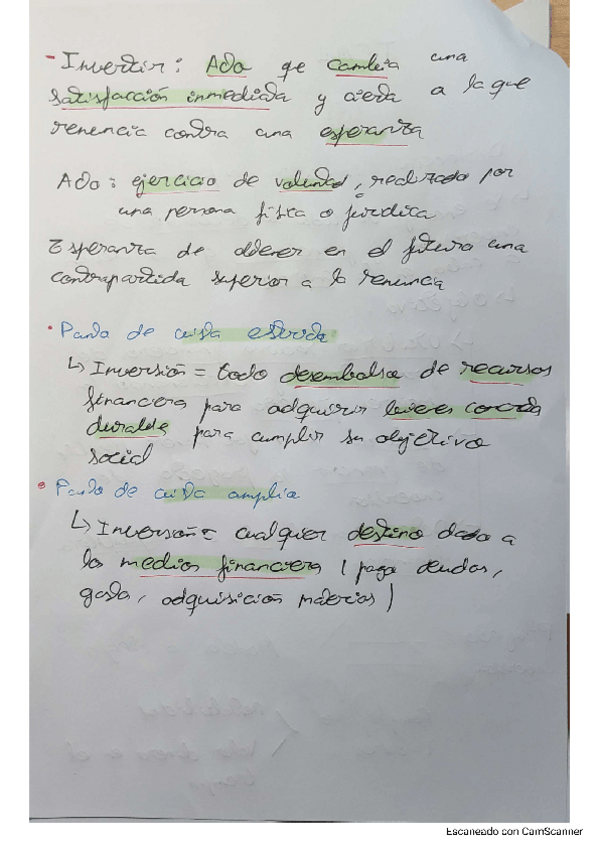 - Invertir: Acto que cambia una
satisfacción inmediata y cierta a la que
renuncia contra una esperanza
Acto: ejercicio de voluntad, realizado por
una persona física o jurídica
Esperanza de obtener en el futuro una
contrapartida superior a la renuncia
• Punto de vista estricta
↳ Inversión = todo desembolso de recursos
financieros para adquirir bienes concretos
durables para cumplir su objetivo
social
• Punto de vista amplia
↳ Inversión = cualquier destino dado a
los medios financieros (pago deudas,
gasto, adquisición materias)
Escaneado con CamScanner